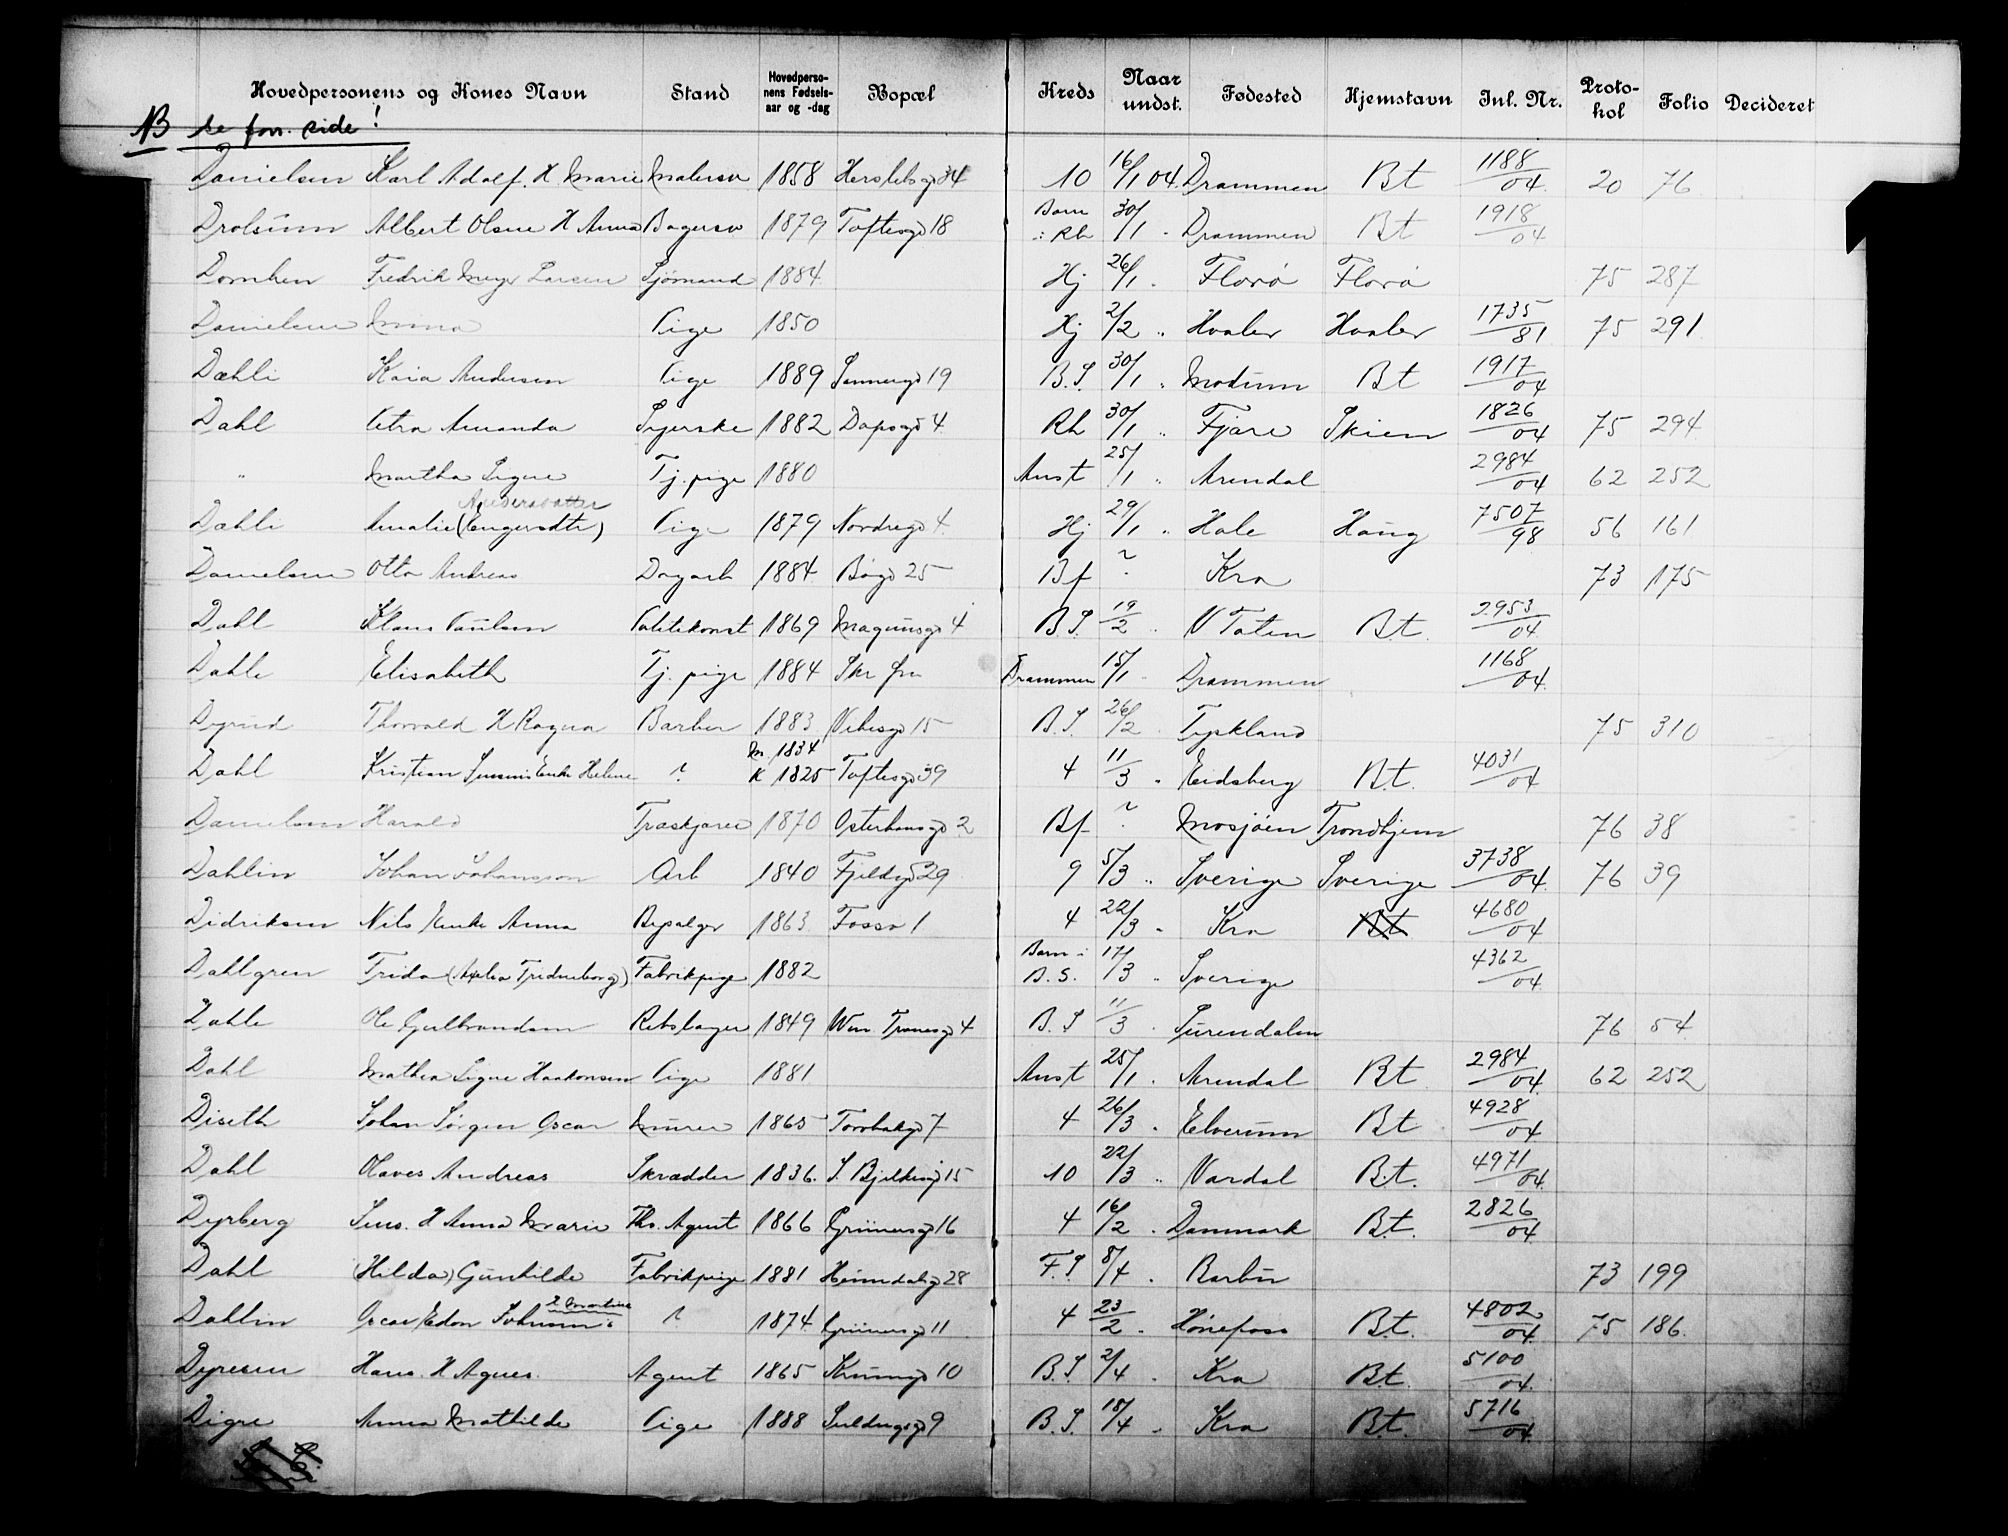 Hovedpersonens og Kones Navn Stand Hovedpersonens Fødselsaar og -dag Bopæl Kreds Naar undst. Fødested Hjemstavn Inl. Nr. Protokol Folio Decideret
NB se forr. side!
Danielsen Karl Adolf. H Marie Malersv 1858 Herslebsgd 34 10 16/1 04. Drammen Bt 1188/04. 20 76
Drolsum Albert Olsen H Anna Bagersv 1879 Toftesgd 18 Barn i Rh 30/1 - Drammen Bt 1918/04
Fredrik Meyer Larsen Sjømand 1884 Hj 26/1 - Florø Florø 75 287
Danielsen Mina Pige 1850 Hj 2/2 " Hvaler Hvaler 1735/81 75 291
Dæhli Kaia Andersen Pige 1889 Sannergd 19 B.S. 30/1 " Modum Bt 1917/04
Dahl Petra Amanda Syerske 1882 Dapsgd 4 Rh 30/1 " Fjære Skien 1826/04 75 294
" Martha Signe Tj. pige 1880 Anst 25/1 " Arendal 2984/04 62 252
Dæhli Amalie (Engersdtr) Andersdatter Pige 1879 Nordregd 4 Hj 29/1 " Hole Haug 7507/98 56 161
Danielsen Otto Andreas Dagarb 1884 Bøgd 25 Bf ? Kra 73 175
Dahl Klaus Paulsen Politikonst 1869 Magnusgd 4 B.S. 19/2 " V Toten B.t. 2953/04
Dahle Elisabeth Tj. pige 1884 Drammen 15/1 - Drammen 1168/04.
Dyrud Thorvald H Ragna Barber 1883 Vibesgd 15 B.S. 26/2 - Tyskland 75 310
Dahl Kristian Enke Helene ? M 1834 K 1825 Toftesgd 39 4 11/3 " Eidsberg B.t. 4031/04
Danielsen Harald Træskjærer 1870 Osterhausgd 2 Bf ? Mosjøen Trondhjem 76 38
Dahlin Johan Johansson Arb 1840 Fjeldgd 29 9 5/3 " Sverige Sverige 3738/04. 76 39
Didriksen Nils Enke Anna Bypalger 1863 Fossv 1 4 22/3 - Kra Bt 4680/04
Dahlgren Frida (Axelia Fridneborg) Fabrikpige 1882 Barn i B.S. 17/3 " Sverige 4362/04.
Dahle Ole Gulbrandsen Rebslager 1849 Wm Tranesgd 4 B.S 11/3 - Surendalen 76 54
Dahl Mathea Signe Haakonsen Pige 1881 Anst 25/1 - Arendal Bt 2984/04. 62 252
Diseth Johan Jørgen Oscar Murer 1865 Torvbakgd 7 4 26/3 - Elverum Bt 4928/04
Dahl Olaves Andreas Skrædder 1836. S. Bjeldsegd 15 10 22/3 " Vardal B.t. 4971/04.
Dyrberg Jens. H Anna Marie Ths. Agent 1866 Grünersgd 16 4 16/2 - Danmark B.t. 2826/04.
Dahl (Hilda) Gunhilde Fabrikpige 1881 Heimdalsgd 28 F.S 8/4 - Barbu 73 199
Dahlin Oscar Edon H Martine ? 1874 Grünersgd 11 4 23/2 - Hønefoss B.t. 4802/04. 75 186.
Dyresen Hans. H Agnes. Agent 1865 10 B.S. 2/4 - Kra B.t. 5100/04.
Digre Anna Mathilde Pige 1888 9 B.S. 18/4 - Kra B.t. 5716/04.